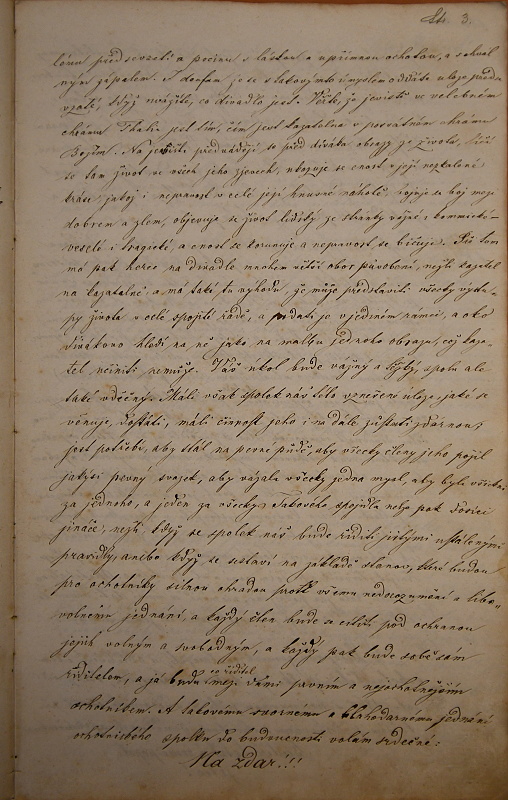 Str. 3.
lému předsevzetí a počinu s láskou a upřímnou ochotou, a schval
ným zápalem. I doufám že se s takovýmto úmyslem oddáte úloze předse
vzaté, když uvážíte, co divadlo jest. Víte, že jeviště ve velebném
chrámu Thalie jest tím, čím jest kazatelna v posvátném chrámu
Božím. Na jevišti předvádějí se před diváka obrazy ze života, líčí
se tam život ve všech jeho zjevech, ukazuje se cnost v její nezkalené
kráse, jakož i nepravost v celé její hnusné nahotě, vyvine se boj mezi
dobrem a zlem, objevuje se život lidský ze stránky vážné i komicko-
veselé i tragické, a cnost se korunuje a nepravost se bičuje. Při tom
má pak herec na divadle mnohem větší obor působení, nežli kazatel
na kazatelně, a má také tu výhodu, že může představiti všecky výstu-
py života v celé spojité řadě, a podati je v jediném rámci, a oko
divákovo hledí na ně jako na malbu jednoho obrazu, což kaza-
tel učiniti nemůže. Váš úkol bude vážný a těžký, spolu ale
také vděčný. Máli však spolek náš této vznešené úloze, jaké se
věnuje, dostáti, máli činnost jeho i na dále zůstati zdárnou,
jest potřebí, aby stál na pevné půdě, aby všecky členy jeho pojil
jakýsi pevný svazek, aby vázala všecky jedna mysl, aby byli všickni
za jednoho, a jeden za všecky. Takového spojidla nelze pak docíliti
jináče, nežli když se spolek náš bude říditi jistými ustálenými
pravidly, anebo když se sestaví na základě stanov, které budou
pro ochotníky silnou ohradou proti všemu nedorozumění a libo-
volnému jednání, a každý člen bude se cítiti pod ochranou
jejich volným a svobodným, a každý pak bude sobě sám
ředitelem, a já budu co ředitel mezi vámi prvním a nejochotnějším
ochotníkem. A takovému svornému a blahodárnému jednání
ochotnického spolku do budoucnosti volám srdečné:
Na zdar!!!